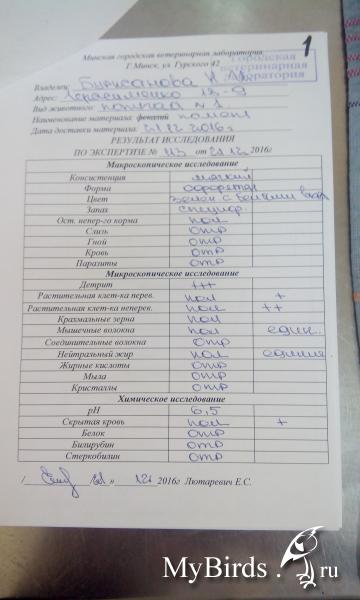 1
Минская городская ветеринарная лаборатория
Г.Минск, ул. Гурского 42
Городская
ветеринарная
лаборатория
Владелец
Адрес: 13-9
Вид животного попугай №1.
Наименование материала: фекалий помет
Дата доставки материала: 21.12.2016г
РЕЗУЛЬТАТ ИССЛЕДОВАНИЯ
ПО ЭКСПЕРТИЗЕ № 113 от 21.12.2016г
Макроскопическое исследование
Консистенция мягкий
Форма
Цвет зелен с белыми
Запах специф.
Ост. непер-го корма пол
Слизь отр
Гной отр
Кровь отр
Паразиты отр
Микроскопическое исследование
Детрит +++
Растительная клет-ка перев. пол +
Растительная клет-ка неперев. пол ++
Крахмальные зерна пол
Мышечные волокна пол един.
Соединительные волокна отр
Нейтральный жир пол единич.
Жирные кислоты отр
Мыла отр
Кристаллы отр
Химическое исследование
pH 6,5
Скрытая кровь пол +
Белок отр
Билирубин отр
Стеркобилин отр
/ 21 » 12 2016г Лютаревич Е.С.
MyBirds.ru